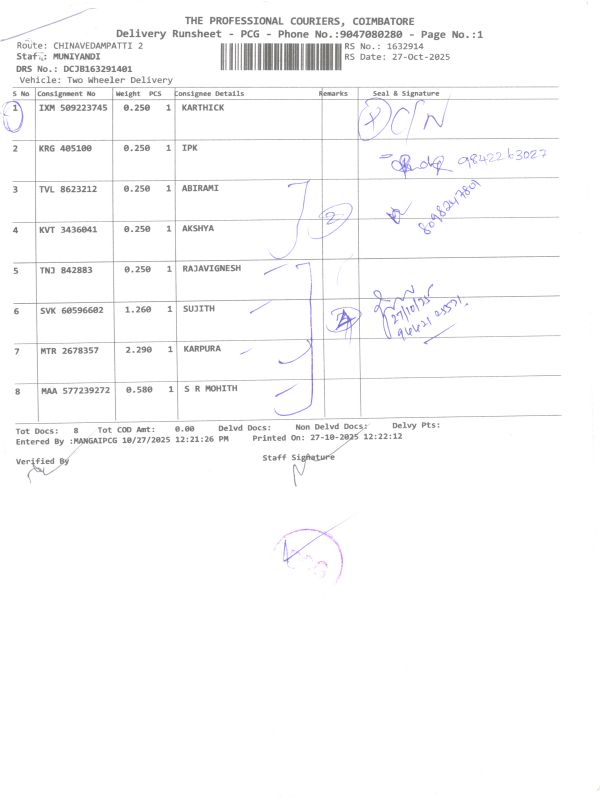 THE PROFESSIONAL COURIERS, COIMBATORE
Delivery Runsheet - PCG - Phone No.:9047080280 - Page No.:1
Route: CHINAVEDAMPATTI 2 RS No.: 1632914
Staff: MUNIYANDI RS Date: 27-Oct-2025
DRS No.: DCJB163291401
Vehicle: Two Wheeler Delivery
S No Consignment No Weight PCS Consignee Details Remarks Seal & Signature
1 IXM 509223745 0.250 1 KARTHICK C/N
2 KRG 405100 0.250 1 IPK 9842263027
3 TVL 8623212 0.250 1 ABIRAMI 2 8098247801
4 KVT 3436041 0.250 1 AKSHYA
5 TNJ 842883 0.250 1 RAJAVIGNESH
6 SVK 60596602 1.260 1 SUJITH 4 27/10/25
7 MTR 2678357 2.290 1 KARPURA
8 MAA 577239272 0.580 1 S R MOHITH
Tot Docs: 8 Tot COD Amt: 0.00 Delvd Docs: Non Delvd Docs: Delvy Pts:
Entered By :MANGAIPCG 10/27/2025 12:21:26 PM Printed On: 27-10-2025 12:22:12
Verified By Staff Signature